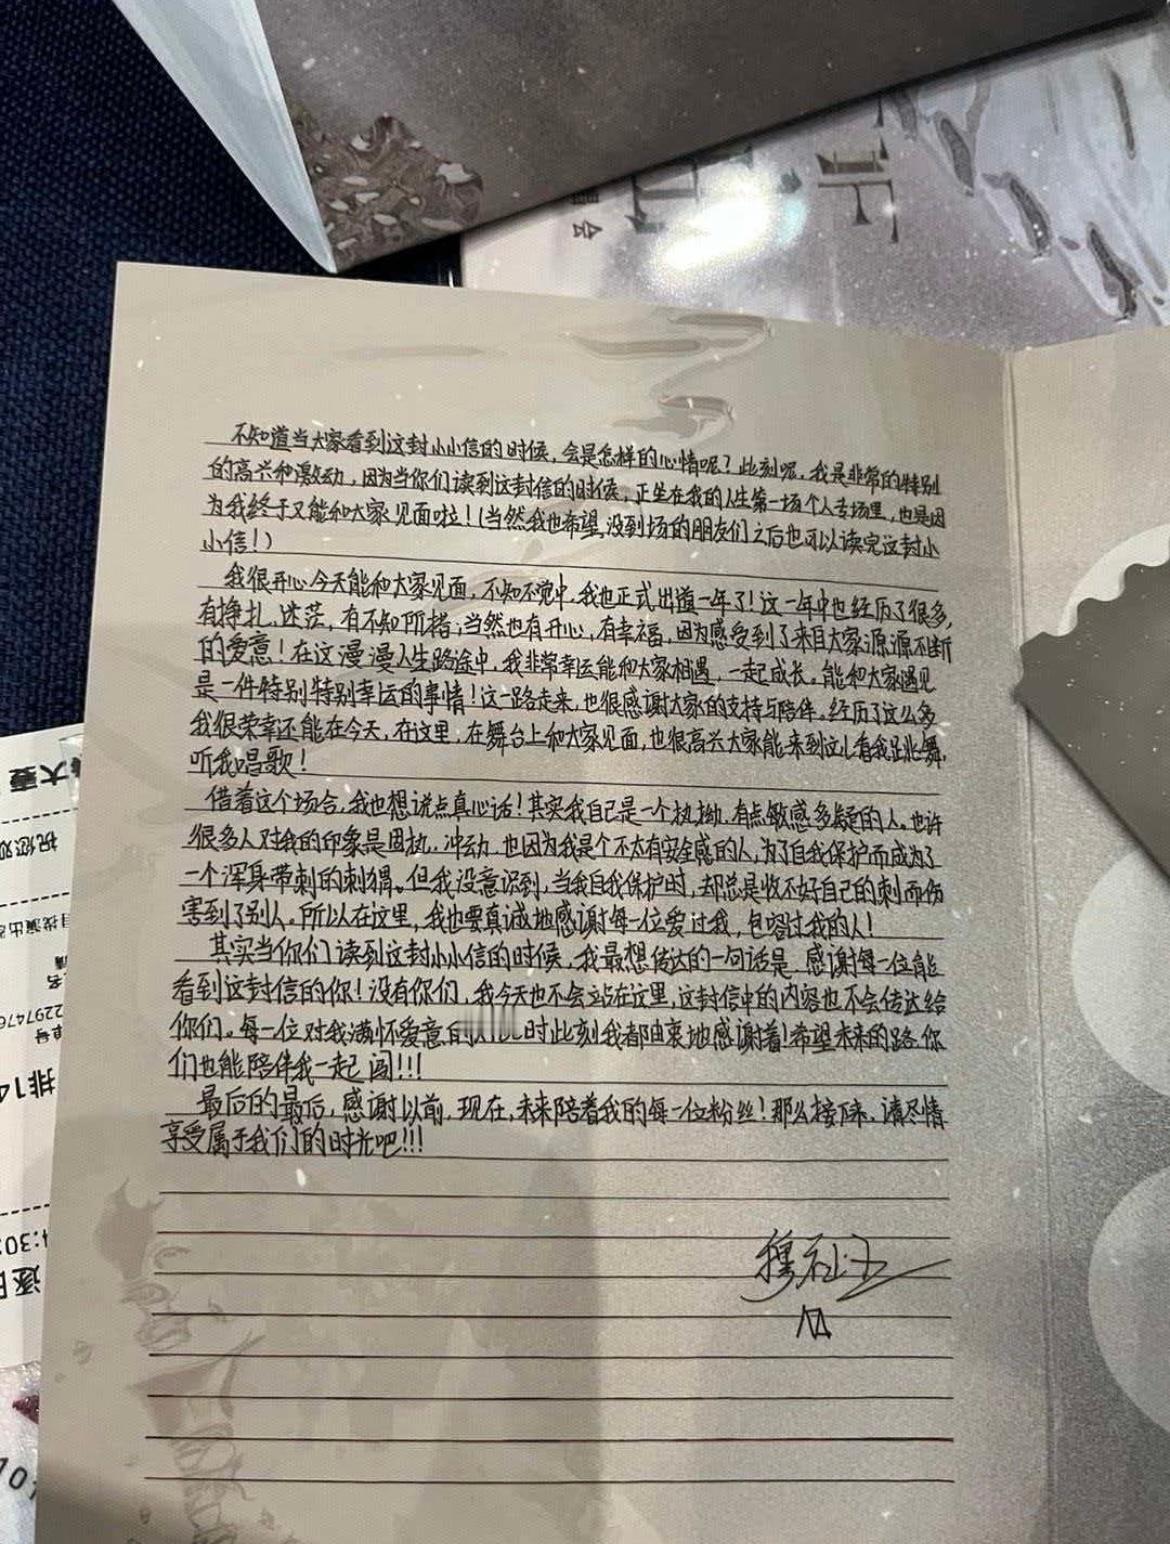 不知道当大家看到这封小小信的时候，会是怎样的心情呢？此刻呢，我是非常的特别
的高兴和激动，因为当你们读到这封信的时候，正坐在我的人生第一场个人专场里，也是因
为我终于又能和大家见面啦！（当然我也希望，没到场的朋友们之后也可以读完这封小
小信！）
我很开心今天能和大家见面，不知不觉中，我也正式出道一年了！这一年中也经历了很多，
有挣扎、迷茫，有不知所措，当然也有开心，有幸福，因为感受到了来自大家源源不断
的爱意！在这漫漫人生路途中，我非常幸运能和大家相遇，一起成长。能和大家遇见
是一件特别特别幸运的事情！这一路走来，也很感谢大家的支持与陪伴。经历了这么多
我很荣幸还能在今天，在这里，在舞台上和大家见面，也很高兴大家能来到这儿看我跳舞，
听我唱歌！
借着这个场合，我也想说点真心话！其实我自己是一个执拗，有点敏感多疑的人。也许
很多人对我的印象是固执，冲动，也因为我是个不太有安全感的人，为了自我保护而成为了
一个浑身带刺的刺猬。但我没意识到，当我自我保护时，却总是收不好自己的刺而伤
害到了别人。所以在这里，我也要真诚地感谢每一位爱过我，包容过我的人！
其实当你们读到这封小小信的时候，我最想传达的一句话是，感谢每一位能
看到这封信的你！没有你们，我今天也不会站在这里，这封信中的内容也不会传达给
你们。每一位对我满怀爱意的 时此刻我都由衷地感谢着！希望未来的路，你
们也能陪伴我一起闯！！！
最后的最后，感谢以前，现在，未来陪着我的每一位粉丝！那么接下来，请尽情
享受属于我们的时光吧！！！
穆祉丞
大麦
祝您观
排14
4:30